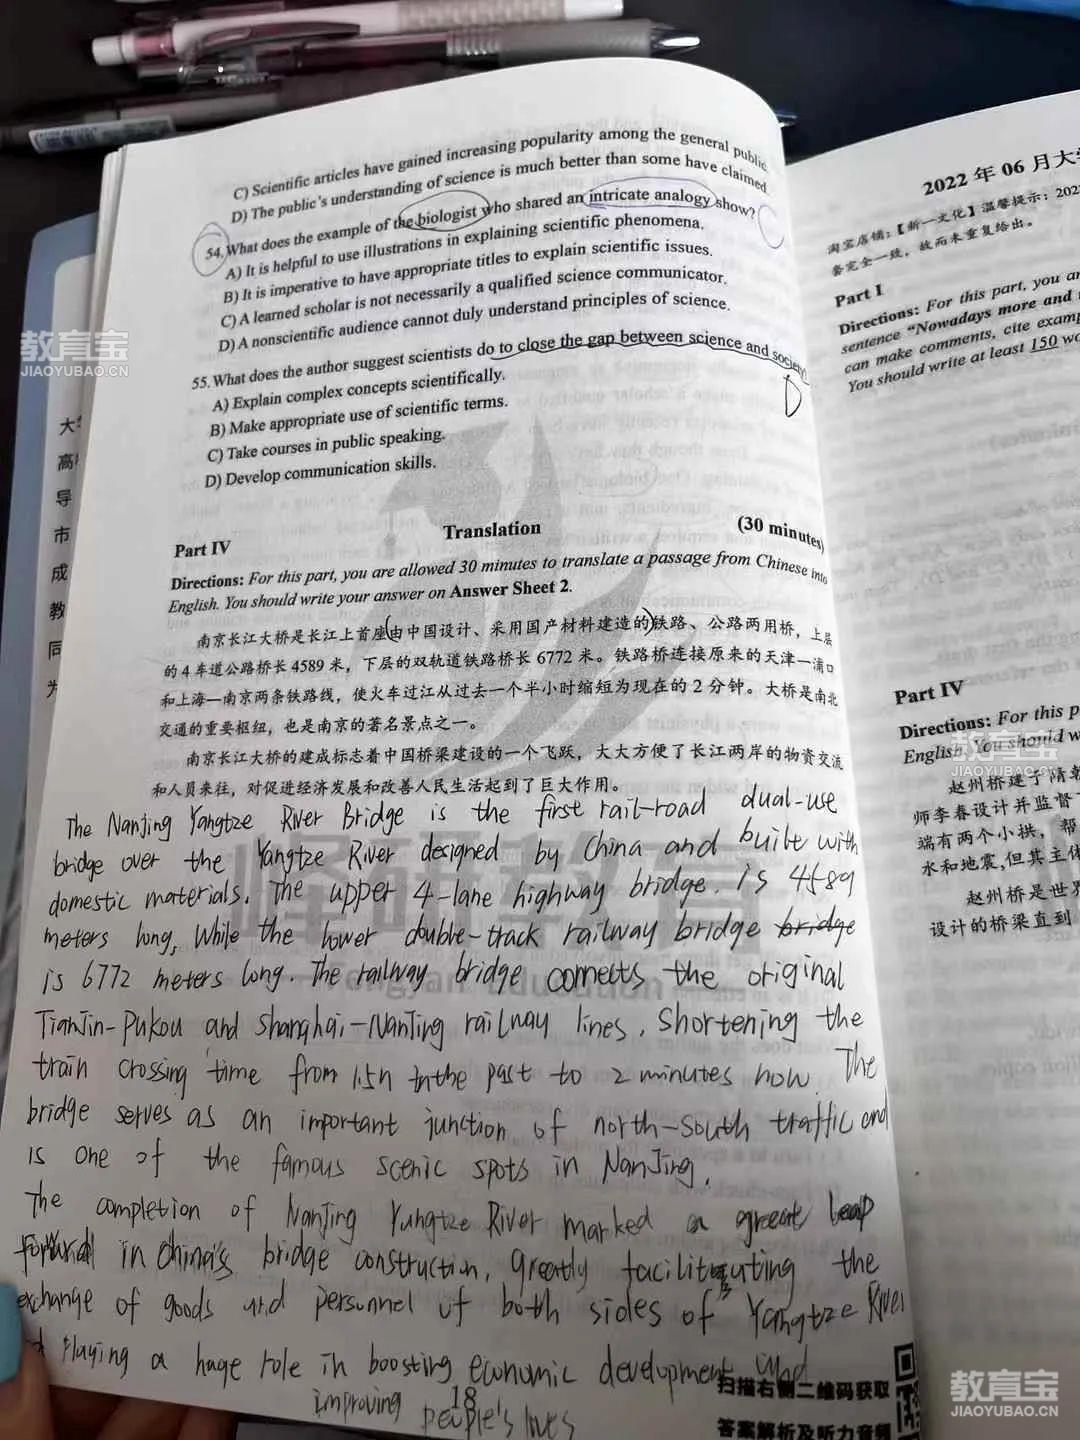 C) Scientific articles have gained increasing popularity among the general public.
D) The public's understanding of science is much better than some have claimed.
54. What does the example of the biologist who shared an intricate analogy show?
A) It is helpful to use illustrations in explaining scientific phenomena.
B) It is imperative to have appropriate titles to explain scientific issues.
C) A learned scholar is not necessarily a qualified science communicator.
D) A nonscientific audience cannot duly understand principles of science.
55. What does the author suggest scientists do to close the gap between science and society?
D
A) Explain complex concepts scientifically.
B) Make appropriate use of scientific terms.
C) Take courses in public speaking.
D) Develop communication skills.
Part IV Translation (30 minutes)
Directions: For this part, you are allowed 30 minutes to translate a passage from Chinese into
English. You should write your answer on Answer Sheet 2.
南京长江大桥是长江上首座(由中国设计、采用国产材料建造的)铁路、公路两用桥，上层
的4车道公路桥长4589米，下层的双轨道铁路桥长6772米。铁路桥连接原来的天津—浦口
和上海—南京两条铁路线，使火车过江从过去一个半小时缩短为现在的2分钟。大桥是南北
交通的重要枢纽，也是南京的著名景点之一。
南京长江大桥的建成标志着中国桥梁建设的一个飞跃，大大方便了长江两岸的物资交流
和人员来往，对促进经济发展和改善人民生活起到了巨大作用。
The Nanjing Yangtze River Bridge is the first rail-road dual-use
bridge over the Yangtze River designed by China and built with
domestic materials. The upper 4-lane highway bridge. is 4589
meters long, while the lower double-track railway bridge bridge
is 6772 meters long. The railway bridge connects the original
TianJin-Pukou and Shanghai-NanJing railway lines. Shortening the
train crossing time from 1.5h in the past to 2 minutes now. The
bridge serves as an important junction of north-south traffic and
is one of the famous scenic spots in NanJing.
The completion of NanJing Yangtze River marked a great leap
forward in China's bridge construction, greatly facilitating the
exchange of goods and personnel of both sides of Yangtze River
Playing a huge role in boosting economic development and
improving people's lives
18
扫描右侧二维码获取
答案解析及听力音频
峰研教育
Fengyan education
大
高
导
市
成
教
同
为
2022年06月大
淘宝店铺：【新一文化】温馨提示：202
套完全一致，故而未重复给出。
Part I
Directions: For this part, you ar
sentence "Nowadays more and
can make comments, cite examp
You should write at least 150 wo
Part IV
Directions: For this p
English. You should w
赵州桥建于隋朝
师李春设计并监督
端有两个小拱，帮
水和地震，但其主体
赵州桥是世界
设计的桥梁直到
教育宝
JIAOYUBAO.CN
教育宝
JIAOYUBAO.CN
教育宝
JIAOYUBAO.CN